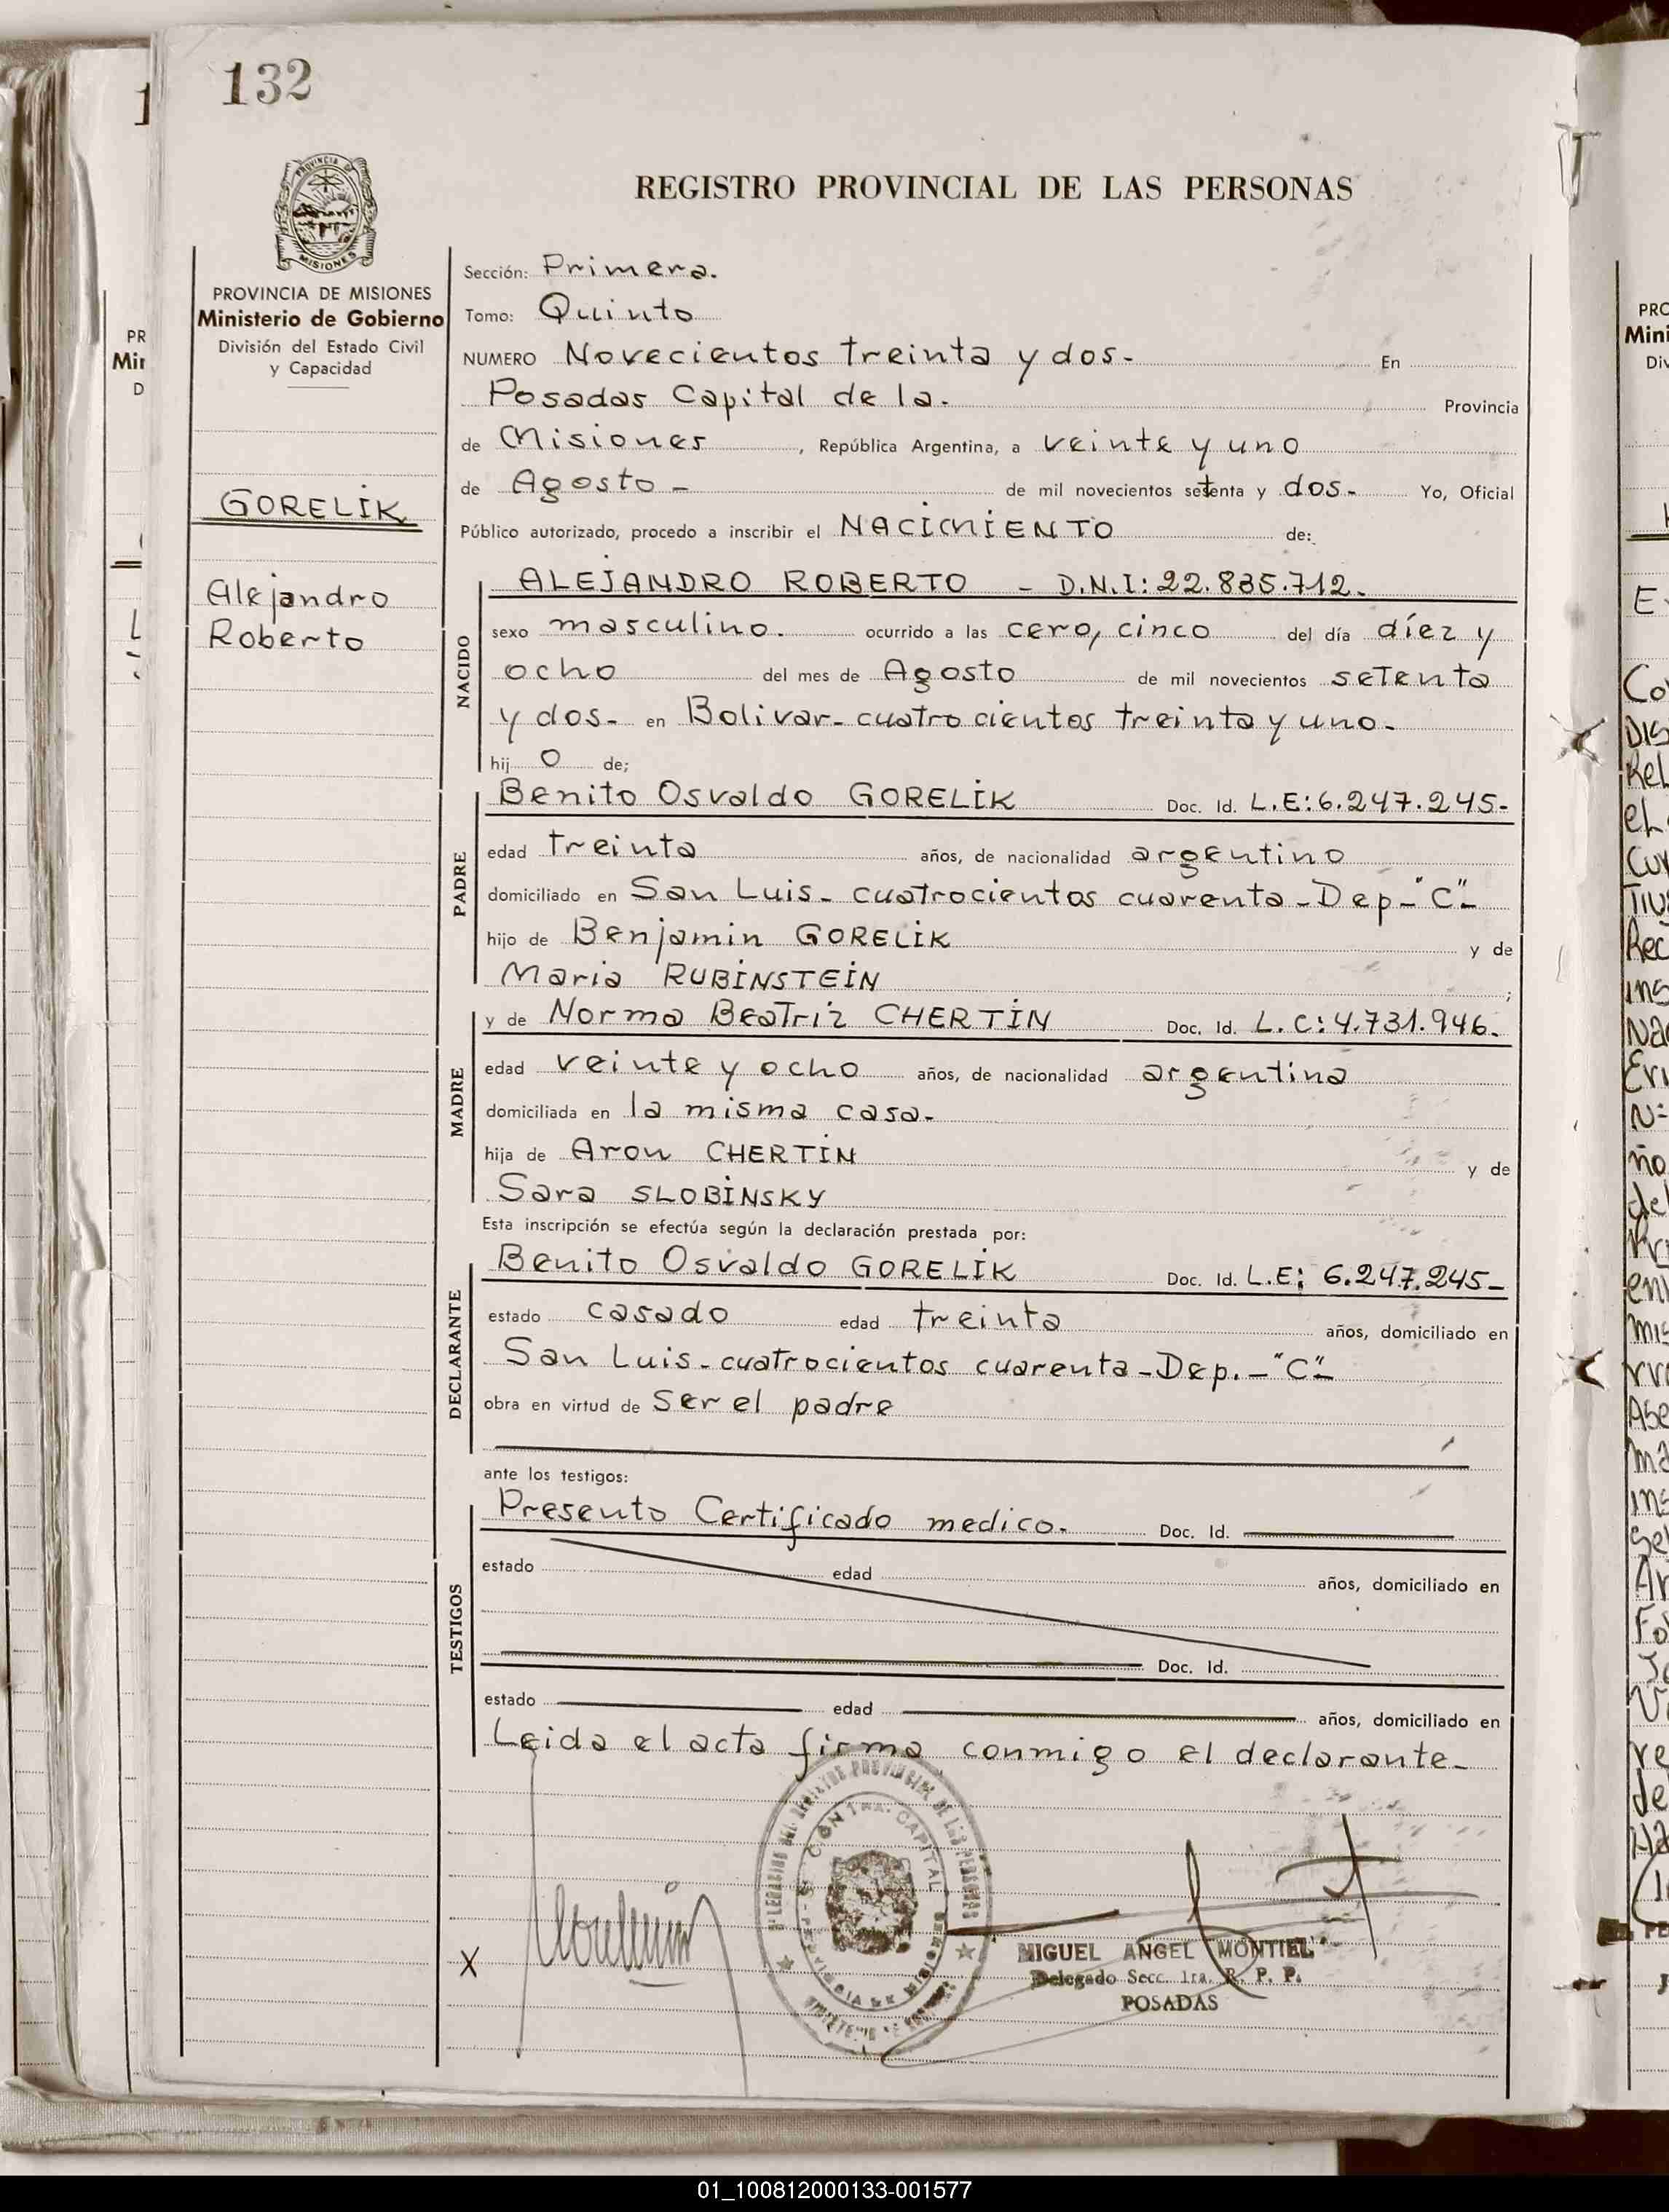 132
PROVINCIA DE
MISIONES
REGISTRO PROVINCIAL DE LAS PERSONAS
PROVINCIA DE MISIONES
Ministerio de Gobierno
División del Estado Civil
y Capacidad
GORELIK
Alejandro
Roberto
Sección: Primera.
Tomo: Quinto
NUMERO Novecientos treinta y dos- En
Posadas Capital de la. Provincia
de Misiones, República Argentina, a veinte y uno
de Agosto - de mil novecientos setenta y dos- Yo, Oficial
Público autorizado, procedo a inscribir el NACIMIENTO de:
NACIDO
ALEJANDRO ROBERTO - D.N.I: 22.835.712.
sexo masculino. ocurrido a las cero, cinco del día díez y
ocho del mes de Agosto de mil novecientos setenta
y dos- en Bolivar- cuatrocientos treinta y uno-
hij o de;
PADRE
Benito Osvaldo GORELIK Doc. Id. L.E: 6.247.245-
edad treinta años, de nacionalidad argentino
domiciliado en San Luis- cuatrocientos cuarenta-Dep-"C"-
hijo de Benjamin GORELIK y de
Maria RUBINSTEIN ;
MADRE
y de Norma Beatriz CHERTIN Doc. Id. L.C: 4.731.946.
edad veinte y ocho años, de nacionalidad argentina
domiciliada en la misma casa-
hija de Aron CHERTIN y de
Sara SLOBINSKY
Esta inscripción se efectúa según la declaración prestada por:
DECLARANTE
Benito Osvaldo GORELIK Doc. Id. L.E: 6.247.245-
estado casado edad treinta años, domiciliado en
San Luis-cuatrocientos cuarenta-Dep.-"C"-
obra en virtud de Ser el padre
ante los testigos:
TESTIGOS
Presento Certificado medico. Doc. Id.
estado edad años, domiciliado en
Doc. Id.
estado edad años, domiciliado en
Leida el acta firma conmigo el declarante-
X
MIGUEL ANGEL MONTIEL
Delegado Secc. 1ra. R. P. P.
POSADAS
01_100812000133-001577